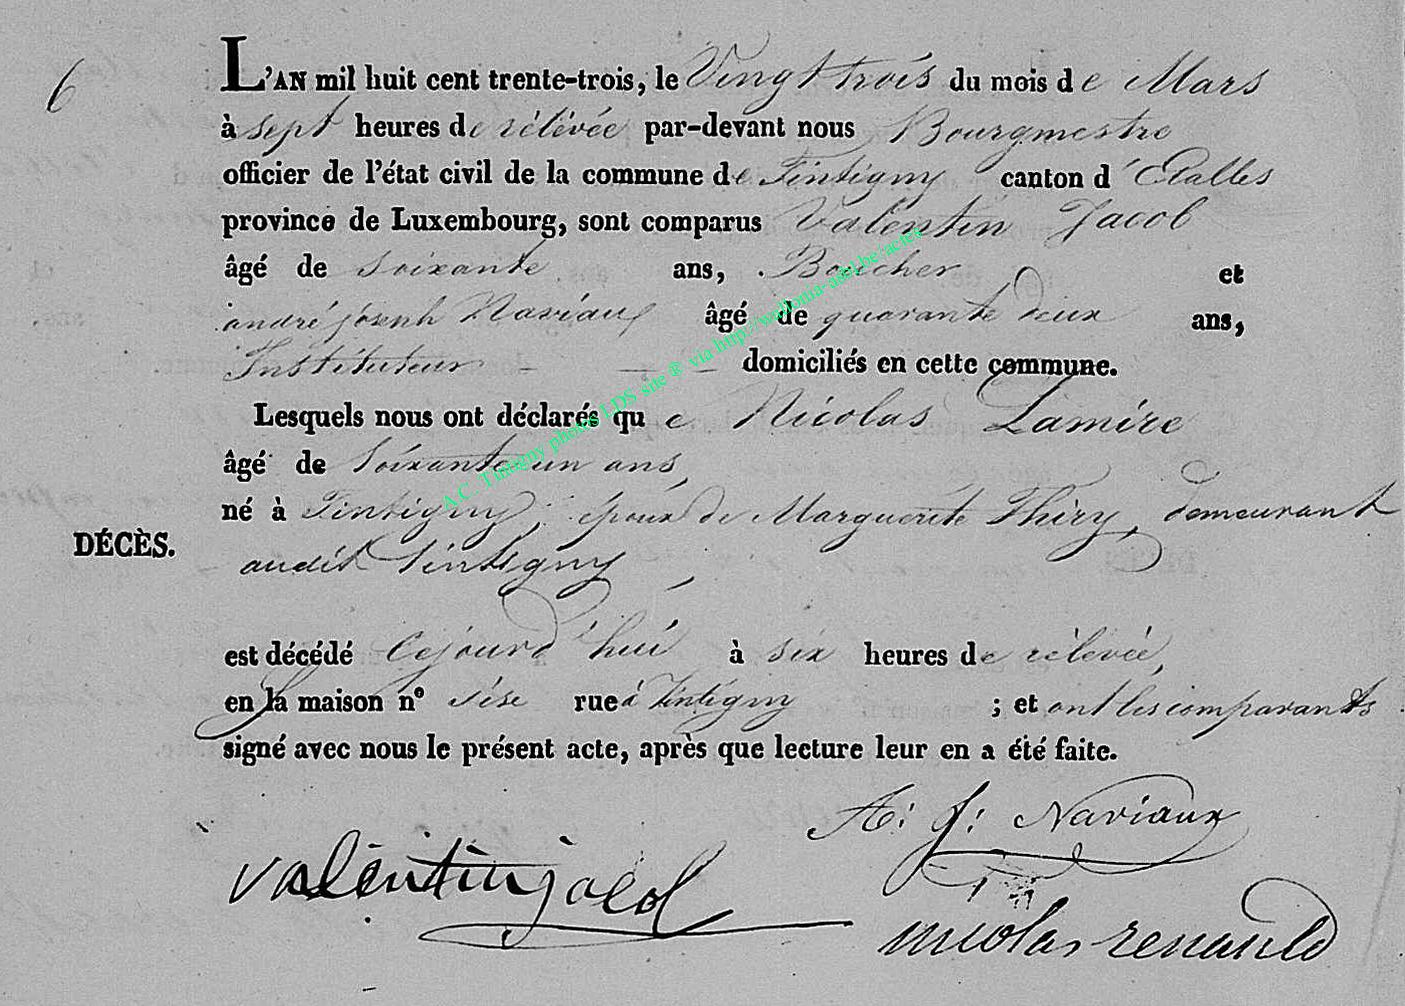 6
L'AN mil huit cent trente-trois, le Vingt trois du mois de Mars
à sept heures de rélévée par-devant nous Bourgmestre
officier de l'état civil de la commune de Tintigny canton d'Etalles
province de Luxembourg, sont comparus Valentin Jacob
âgé de soixante ans, Boucher et
andré joseph Naviaux âgé de quarante deux ans,
Instituteur domiciliés en cette commune.
Lesquels nous ont déclarés que Nicolas Lamire
âgé de soixante un ans,
né à Tintigny, époux de Marguerite Thiry, demeurant
DÉCÈS.
audit Tintigny,
est décédé Cejourd'hui à six heures de rélévée,
en la maison n° sése rue à Tintigny ; et ont les comparants
signé avec nous le présent acte, après que lecture leur en a été faite.
A: J: Naviaux
valentin jacob
nicolas renauld
A.C. Tintigny photos LDS site ® via http://wallonia-asbl.be/actes